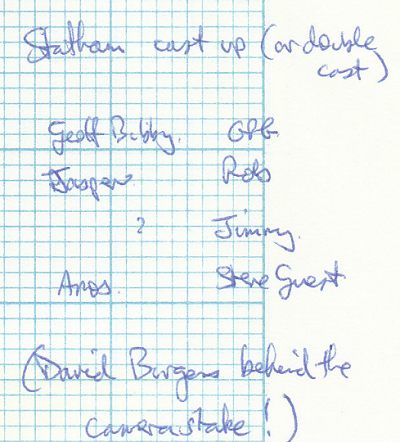 Statham cast up (or double
cast)
Geoff Bibby. GPB
Jasper. Rots
? Jimmy.
Amos. Steve Guest
(David Burgess behind the
camera stake!)